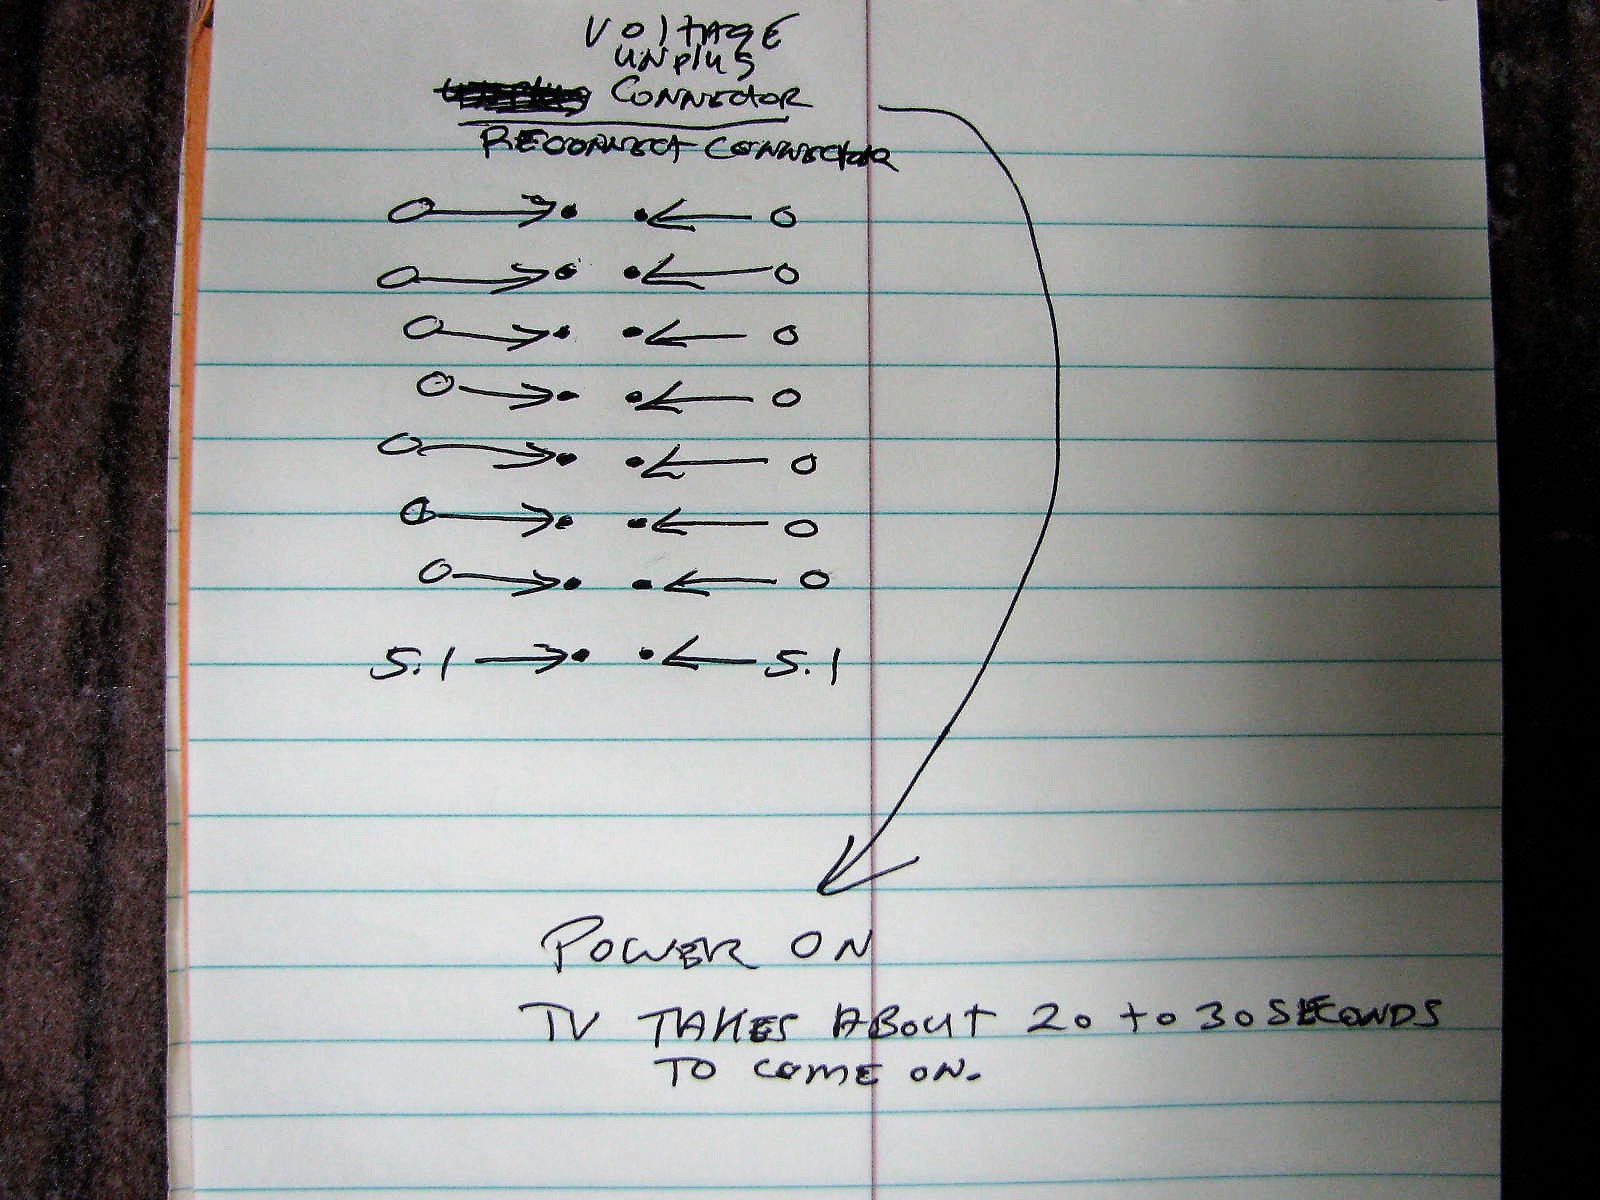 VOLTAGE
UNPLUG
CONNECTOR
RECONNECT CONNECTOR
O → • • ← O
O → • • ← O
O → • • ← O
O → • • ← O
O → • • ← O
O → • • ← O
O → • • ← O
5.1 → • • ← 5.1
POWER ON
TV TAKES ABOUT 20 to 30 SECONDS
TO COME ON.